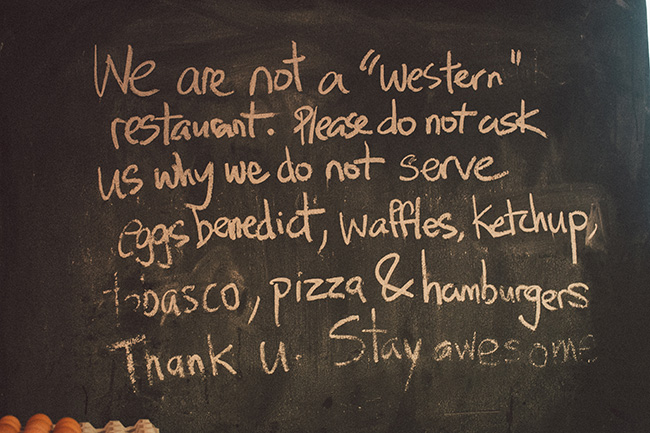 We are not a "Western"
restaurant. Please do not ask
us why we do not serve
eggs benedict, waffles, ketchup,
tobasco, pizza & hamburgers
Thank u. Stay awesome